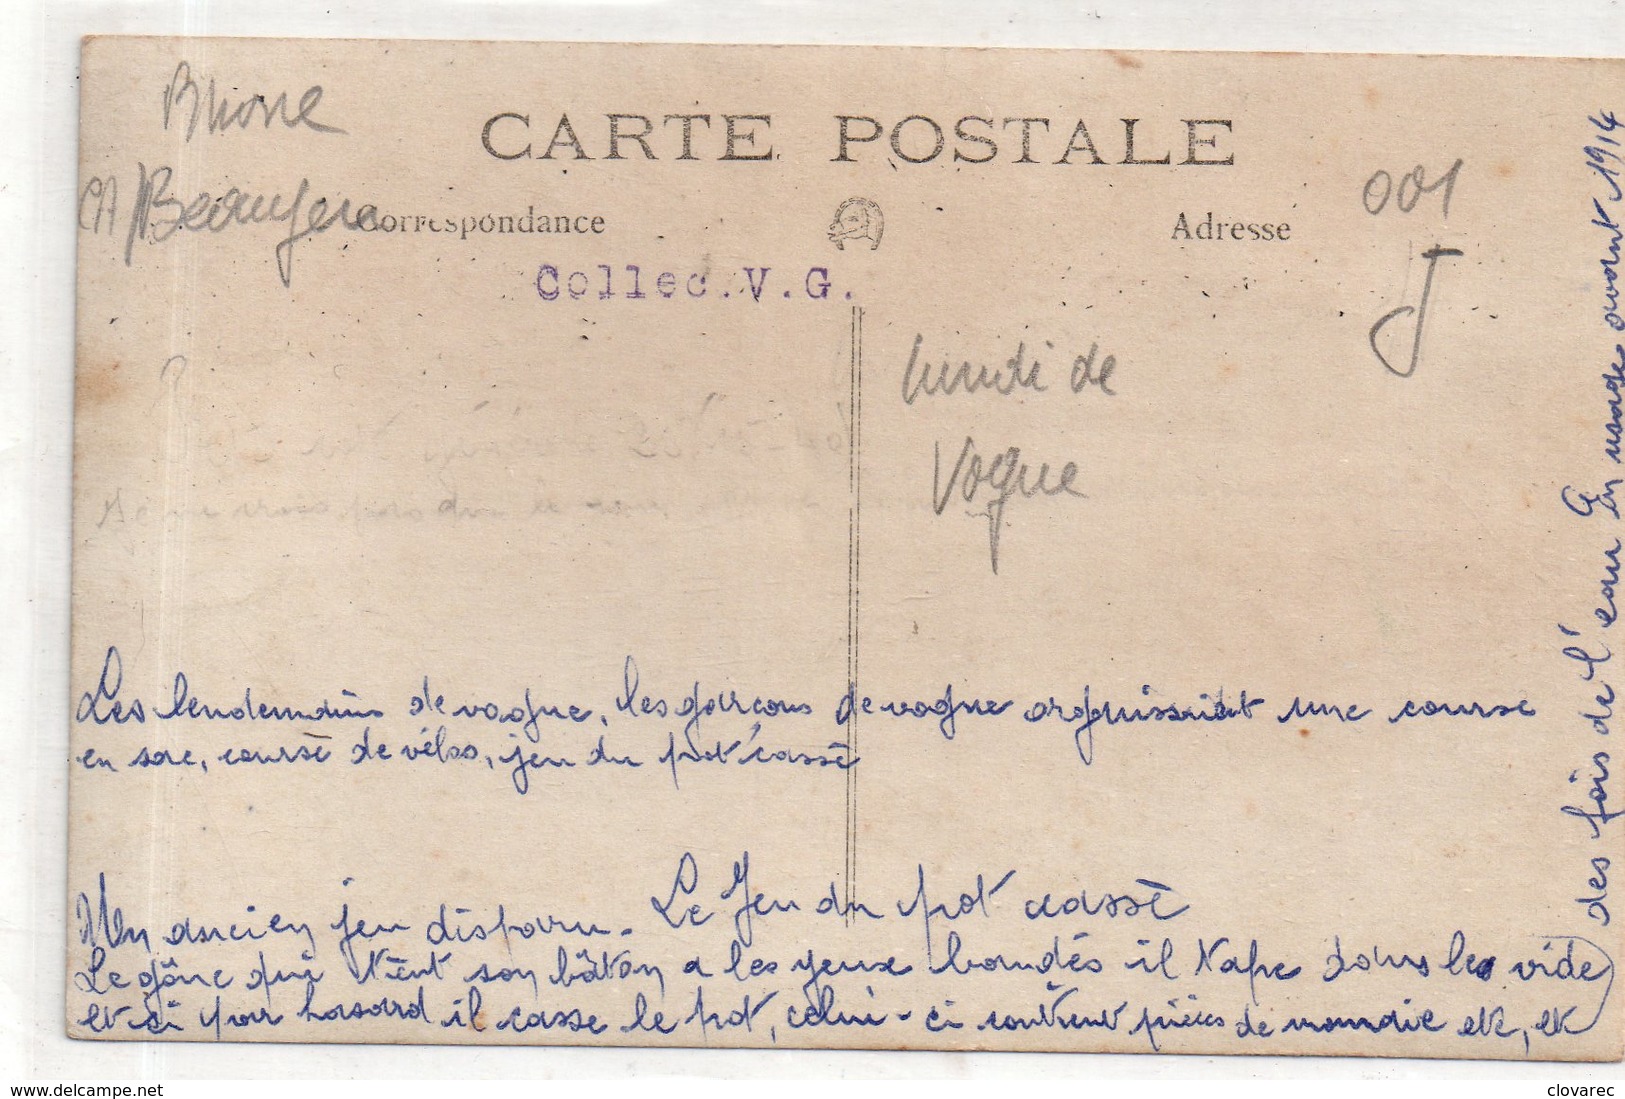 Rhone
CARTE POSTALE
001
Correspondance
Adresse
J
Collec.V.G.
lundi de
Vogue
Les lendemains de vogue, les garçons de vogue organissaient une course
en sac, course de vélos, jeu du pot cassé
Un ancien jeu disparu. Le Jeu du pot cassé
Le gône qui tient son bâton a les yeux bandés il tape dans le vide
et si par hasard il casse le pot, celui-ci contient pièces de monnaie etc, et
des fois de l'eau En usage avant 1914
delcampe.net
clovarec